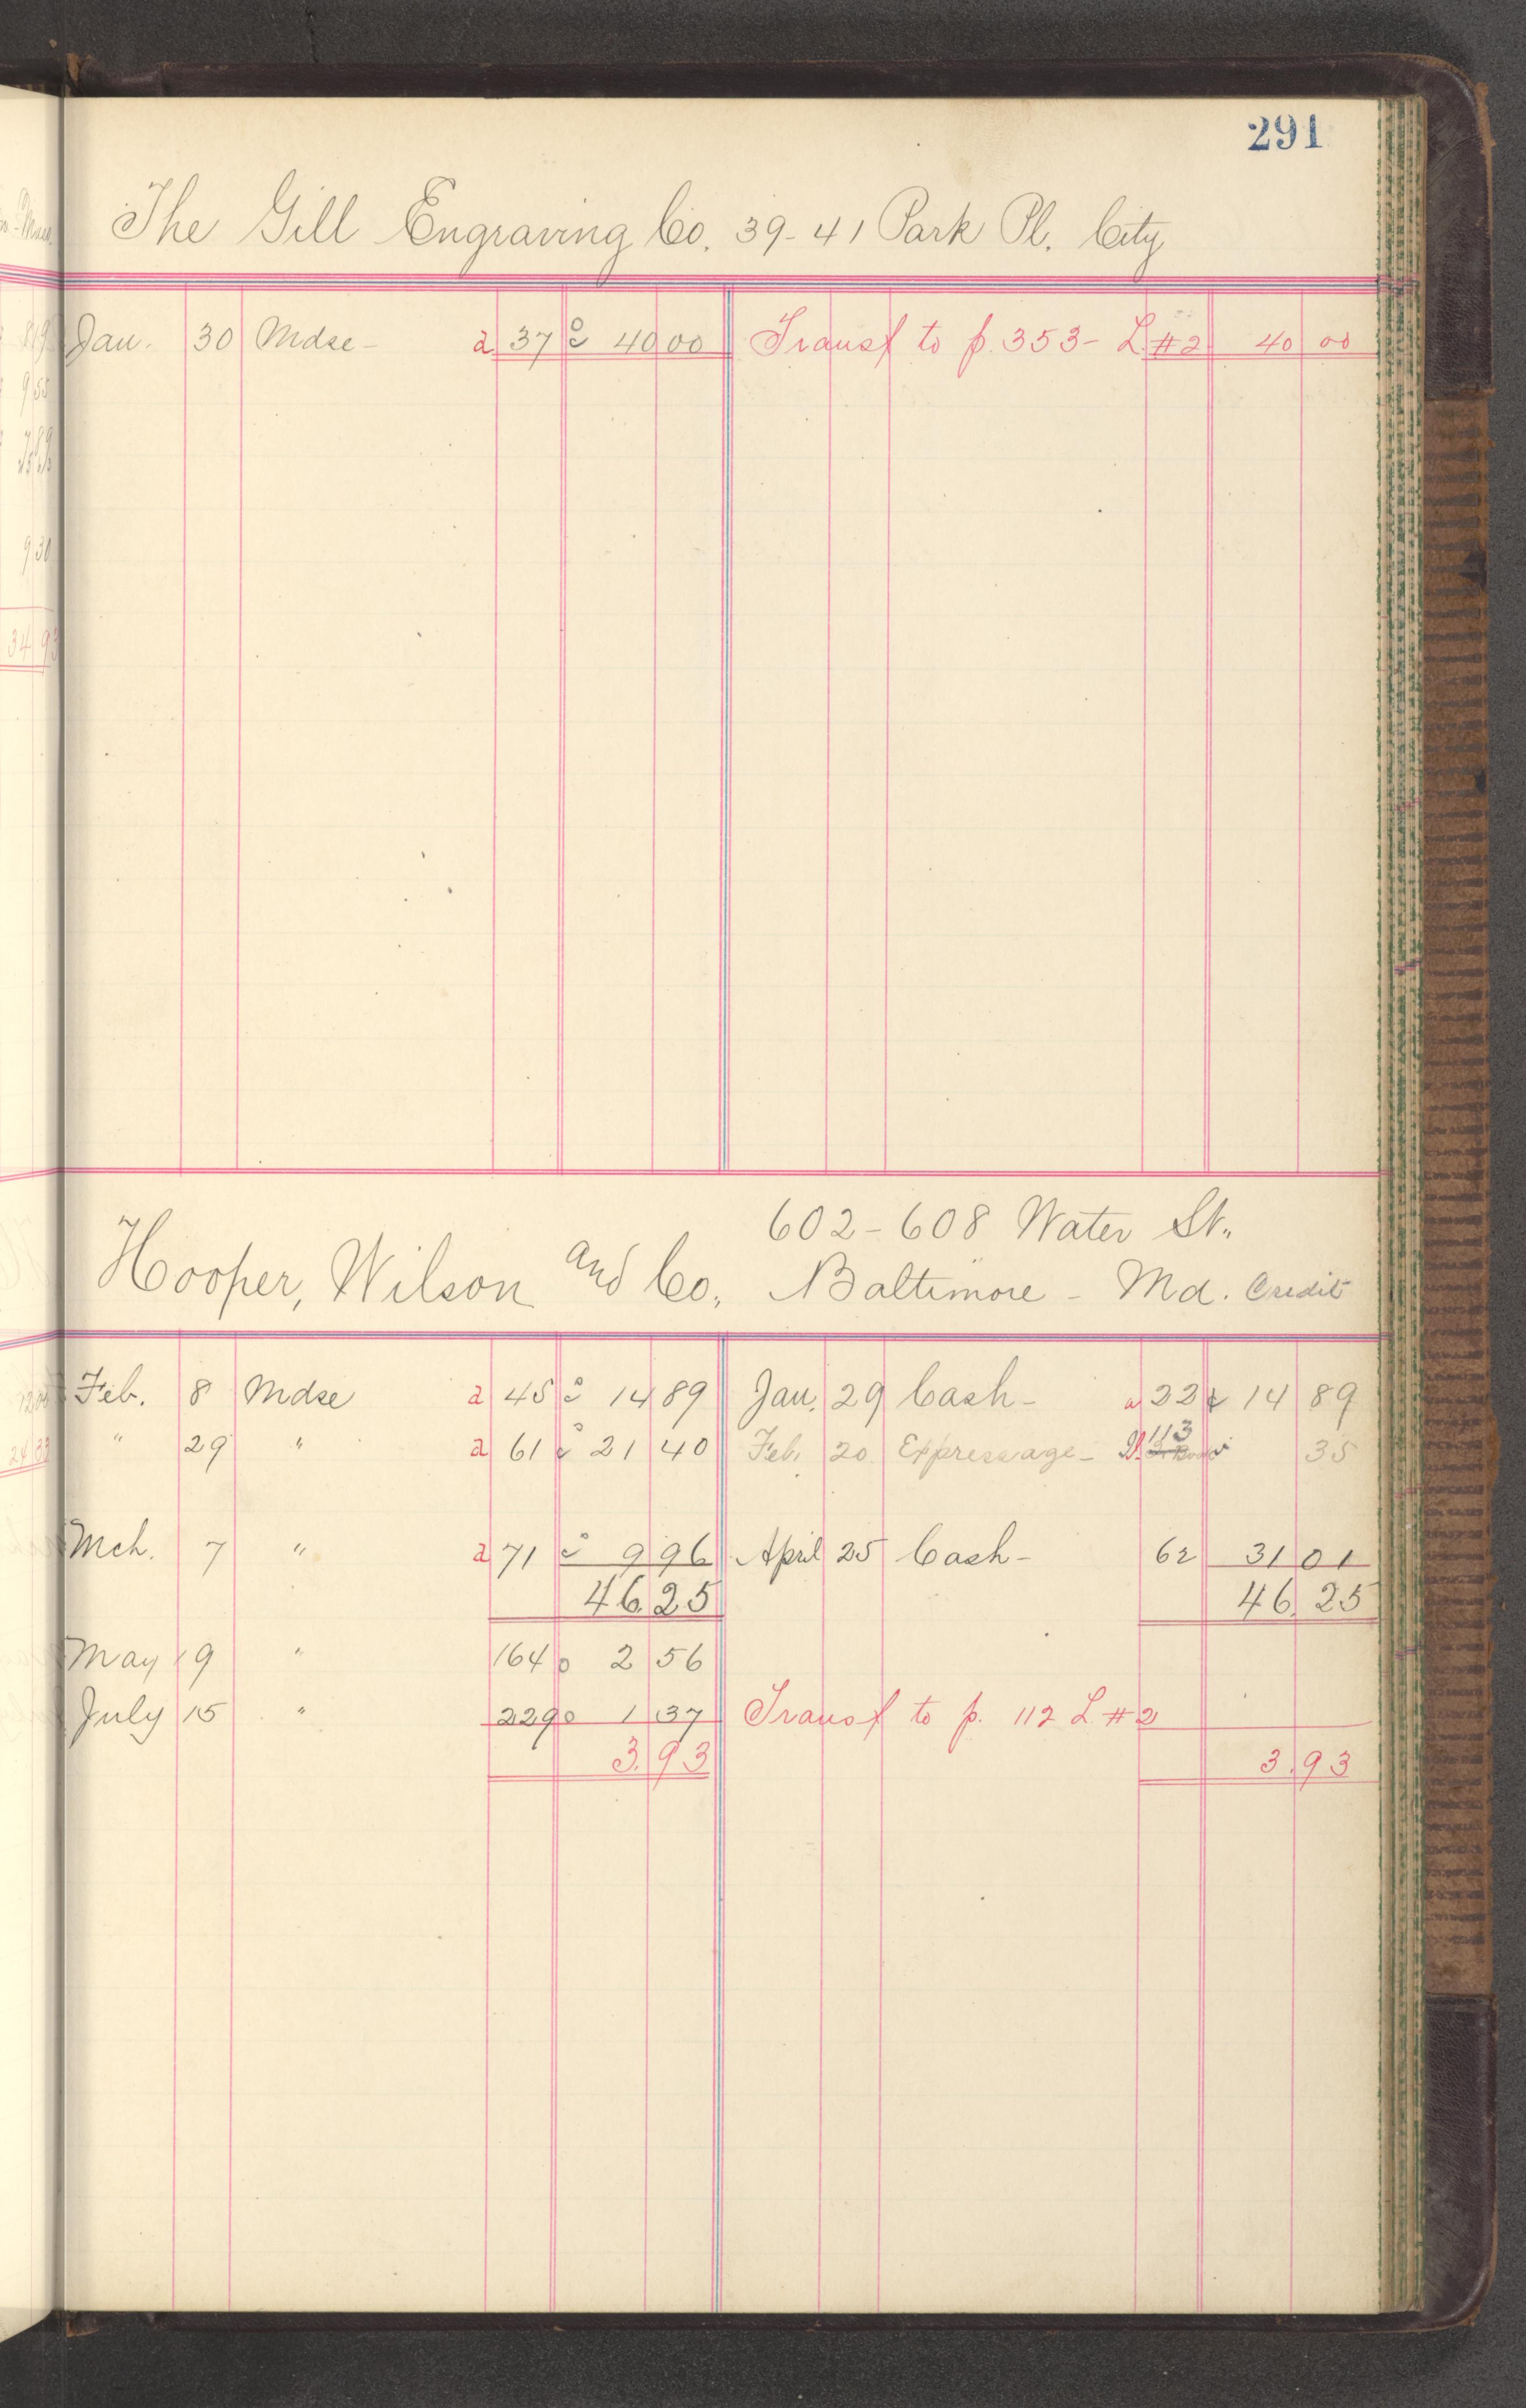 291
The Gill Engraving Co. 39-41 Park Pl. City
Jan. 30 Mdse - a 37 40 00 Transf to p. 353 - L #2 40 00
602-608 Water St.,
Hooper, Wilson and Co., Baltimore - Md. Credit
Feb. 8 Mdse a 45 14 89 Jan. 29 Cash - a 22 14 89
" 29 " a 61 21 40 Feb. 20 Expressage - 113 35
Mch. 7 " a 71 9 96 April 25 Cash - 62 31 01
46.25 46.25
May 9 " 164 2 56
July 15 " 229 1 37 Transf to p. 112 L. #2
3.93 3.93